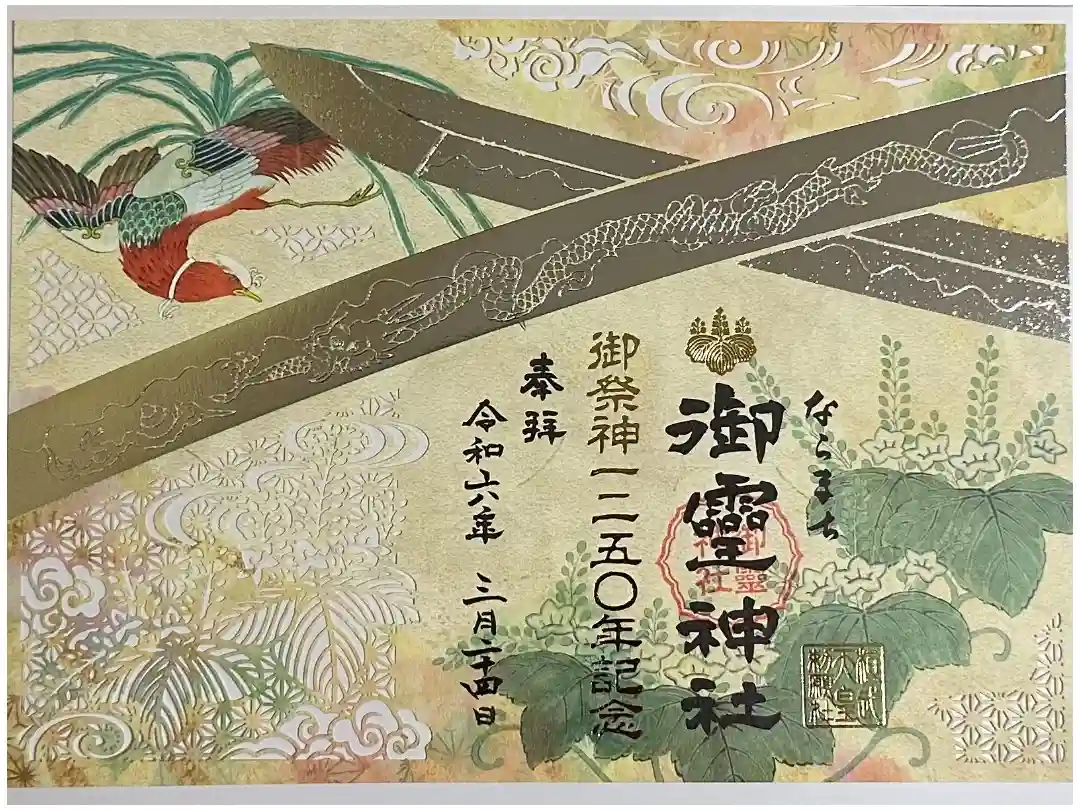 ならまち
御靈神社
御靈神社
桓武天皇勅願社
御祭神一二五〇年記念
奉拝
令和六年 三月二十四日